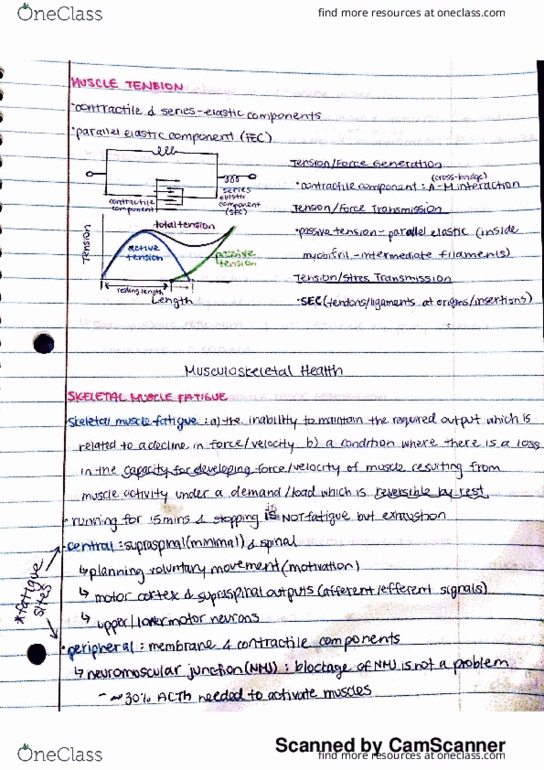 OneClass
find more resources at oneclass.com
MUSCLE TENSION
•contractile & series-elastic components
•parallel elastic component (PEC)
contractile component
series elastic component (SEC)
Tension/Force Generation
(cross-bridge)
•contractile component: A-M interaction
Tension/Force Transmission
•passive tension - parallel elastic (inside
myofibril - intermediate filaments)
Tension/Stress Transmission
•SEC (tendons/ligaments at origins/insertions)
Tension
total tension
active tension
passive tension
resting length
Length
Musculoskeletal Health
SKELETAL MUSCLE FATIGUE
skeletal muscle fatigue: a) the inability to maintain the required output which is
related to a decline in force/velocity b) a condition where there is a loss
in the capacity for developing force/velocity of muscle resulting from
muscle activity under a demand/load which is reversible by rest
•running for 15mins & stopping is NOT fatigue but exhaustion
*fatigue sites
•central: supraspinal (minimal) & spinal
↳planning voluntary movement (motivation)
↳ motor cortex & supraspinal outputs (afferent/efferent signals)
↳ upper/lower motor neurons
•peripheral: membrane & contractile components
↳ neuromoscular junction (NMJ): blockage of NMJ is not a problem
- ~30% ACTh needed to activate muscles
Scanned by CamScanner
OneClass
find more resources at oneclass.com